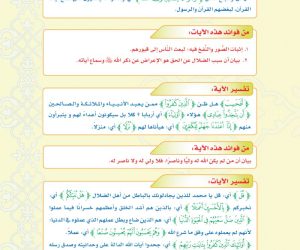 القرآن، لبغضهم القرآن والرسول.
من فوائد هذه الآيات:
١. إثبات الصُّور والنَّفخ فيه؛ لبعث النَّاس إلى قبورهم.
٢. بيان أن سبب الضلال عن الحق هو الإعراض عن ذكر الله ﷻ وسماع آياته.
تفسير الآية:
﴿أَفَحَسِبَ﴾ هل ظنَّ ﴿الَّذِينَ كَفَرُوا﴾ ممن يعبد الأنبياء والملائكة والصالحين
﴾ هؤلاء، ﴿أَوْلِيَاءَ﴾ أي: أربابا ؟ كلا بل سيكونون أعداء لهم و يتبرأون
منهم ﴿إِنَّا أَعْتَدْنَا جَهَنَّمَ لِلْكَافِرِينَ﴾ أي: هيأناها لهم ﴿نُزُلًا﴾ أي: منزلا.
من فوائد هذه الآية:
بيان أن من لم يكن الله له وليًّا وناصرًا، فلا ولي له ولا ناصر له.
تفسير الآيات:
﴿قُلْ﴾ أي، قل يا محمد للذين يجادلونك بالباطل من أهل الضلال ﴿هَلْ نُنَبِّئُكُمْ﴾ أي،
نخبركم ﴿بِالْأَخْسَرِينَ أَعْمَالًا﴾ أي، بالذين هم أشد الخلق وأعظمهم خسرانا فيما عملوا
﴿الَّذِينَ ضَلَّ سَعْيُهُمْ فِي الْحَيَاةِ الدُّنْيَا﴾ أي، هم الذين ضاع وبطل عملهم الذي عملوه في الدنيا؛
لأنهم لم يعملوه على وفق ما شرع الله ﴿وَهُمْ يَحْسَبُونَ أَنَّهُمْ يُحْسِنُونَ صُنْعًا﴾ أي، عملا.
أي، جحدوا آيات الله الدالة على وحدانيته وصدق رسله